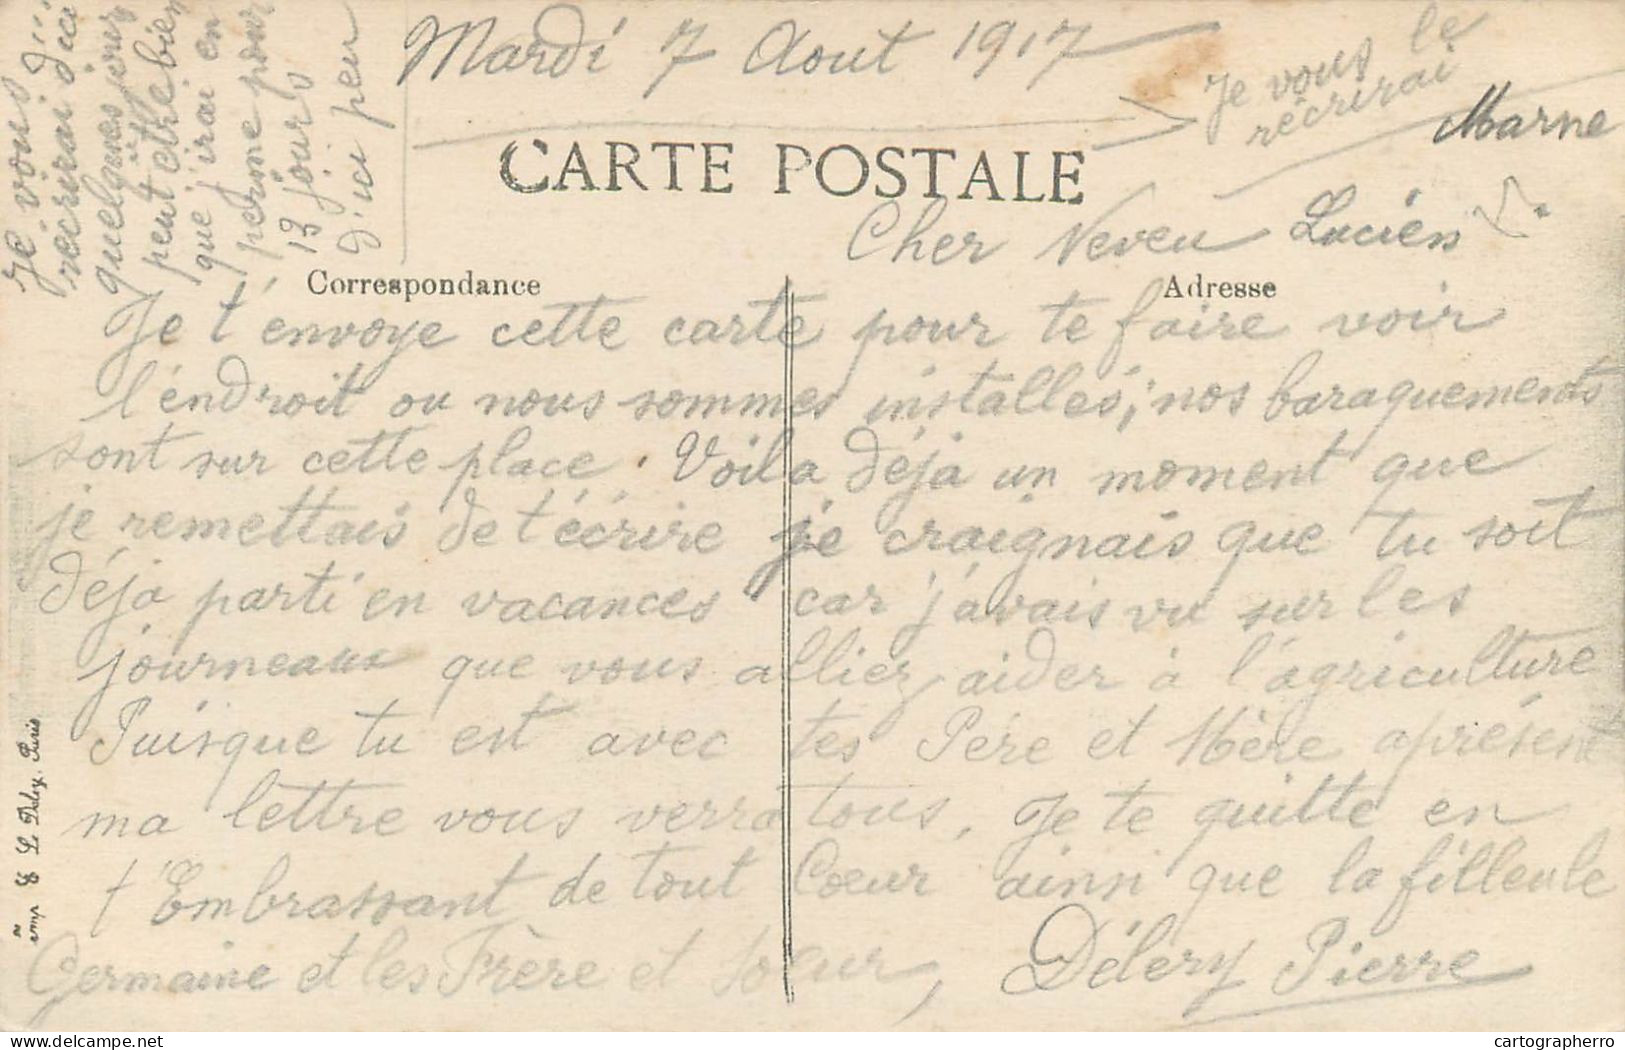 Mardi 7 Aout 1917
Je vous le
récrirai
Marne
CARTE POSTALE
Cher Neveu Lucien
Correspondance
Adresse
Je t'envoye cette carte pour te faire voir
l'endroit ou nous sommes installés, nos baraquements
sont sur cette place. Voila déja un moment que
je remettais de t'écrire je craignais que tu soit
déja parti en vacances car j'avais vu sur les
journeaux que vous alliez aider à l'agriculture
Puisque tu est avec tes Père et Mère aprésent
ma lettre vous verra tous. Je te quitte en
t'Embrassant de tout Coeur ainsi que la filleule
Germaine et les Frère et Soeur,
Délery Pierre
Je vous
recrirai d'ici
quelques jours
peut etre bien
que j'irai en
perme pour
13 jours
d'ici peu
imp Le Deley, Paris
www.delcampe.net
cartographerro